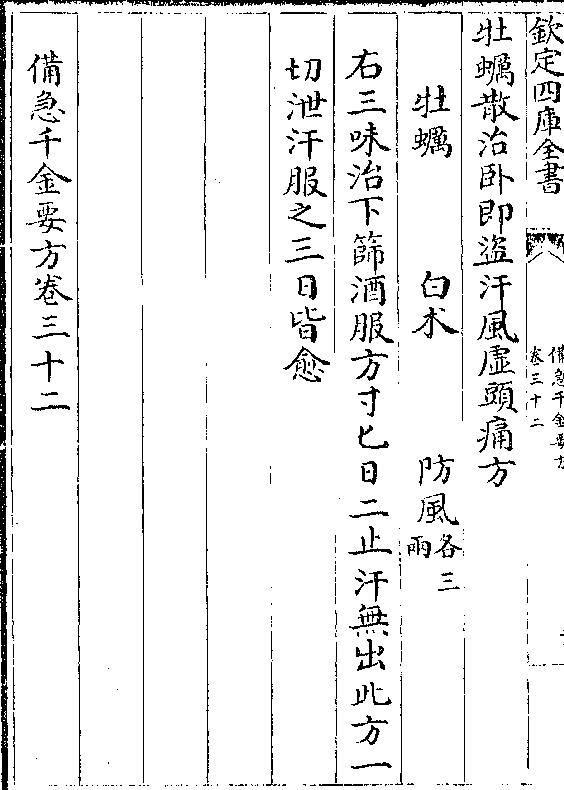 欽定四庫全書
備急千金要方
卷三十二
牡蠣散治卧即盜汗風虛頭痛方
牡蠣　白朮　防風各三兩
右三味治下篩酒服方寸匕日二止汗無出此方一
切泄汗服之三日皆愈
備急千金要方卷三十二